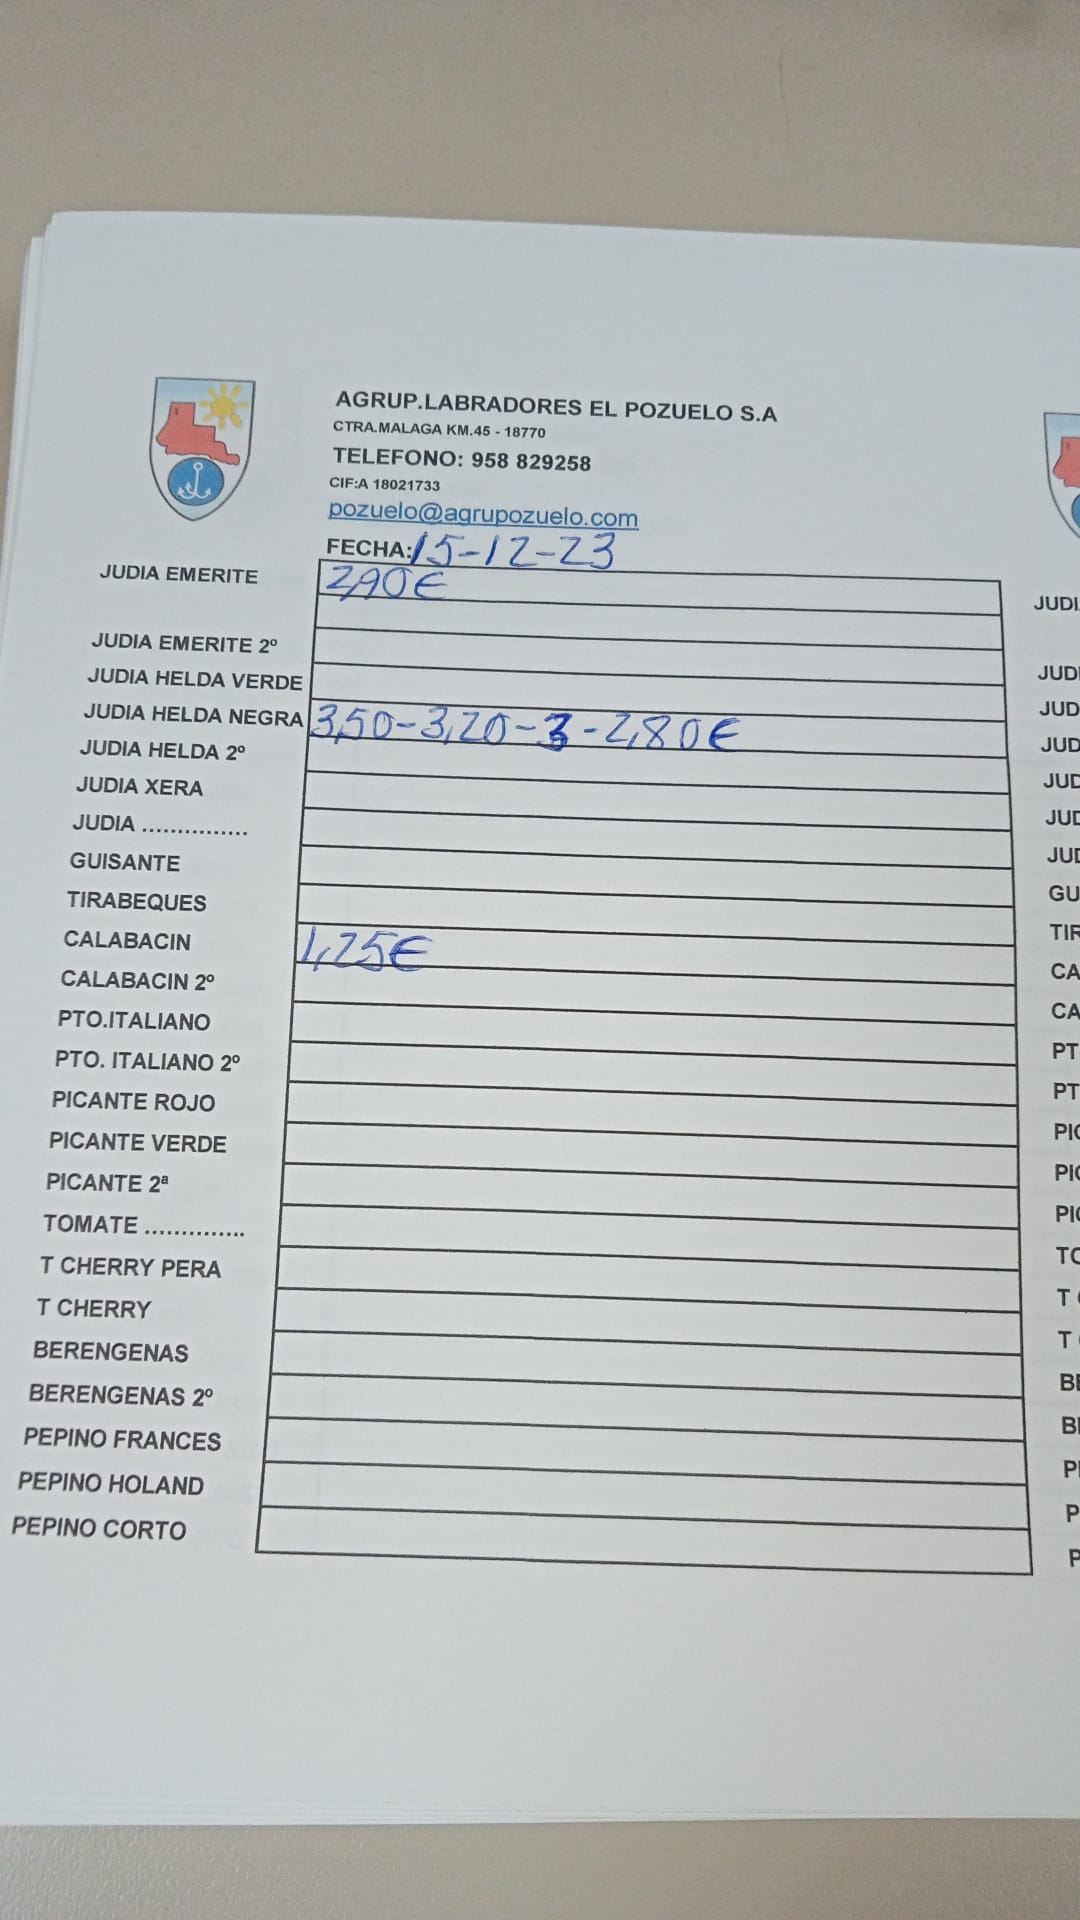 AGRUP.LABRADORES EL POZUELO S.A
CTRA.MALAGA KM.45 - 18770
TELEFONO: 958 829258
CIF:A 18021733
pozuelo@agrupozuelo.com
FECHA: 15-12-23
JUDIA EMERITE 2,90€
JUDIA EMERITE 2º
JUDIA HELDA VERDE
JUDIA HELDA NEGRA 3,50-3,20-3-2,80€
JUDIA HELDA 2º
JUDIA XERA
JUDIA ...............
GUISANTE
TIRABEQUES
CALABACIN 1,25€
CALABACIN 2º
PTO.ITALIANO
PTO. ITALIANO 2º
PICANTE ROJO
PICANTE VERDE
PICANTE 2ª
TOMATE ..............
T CHERRY PERA
T CHERRY
BERENGENAS
BERENGENAS 2º
PEPINO FRANCES
PEPINO HOLAND
PEPINO CORTO